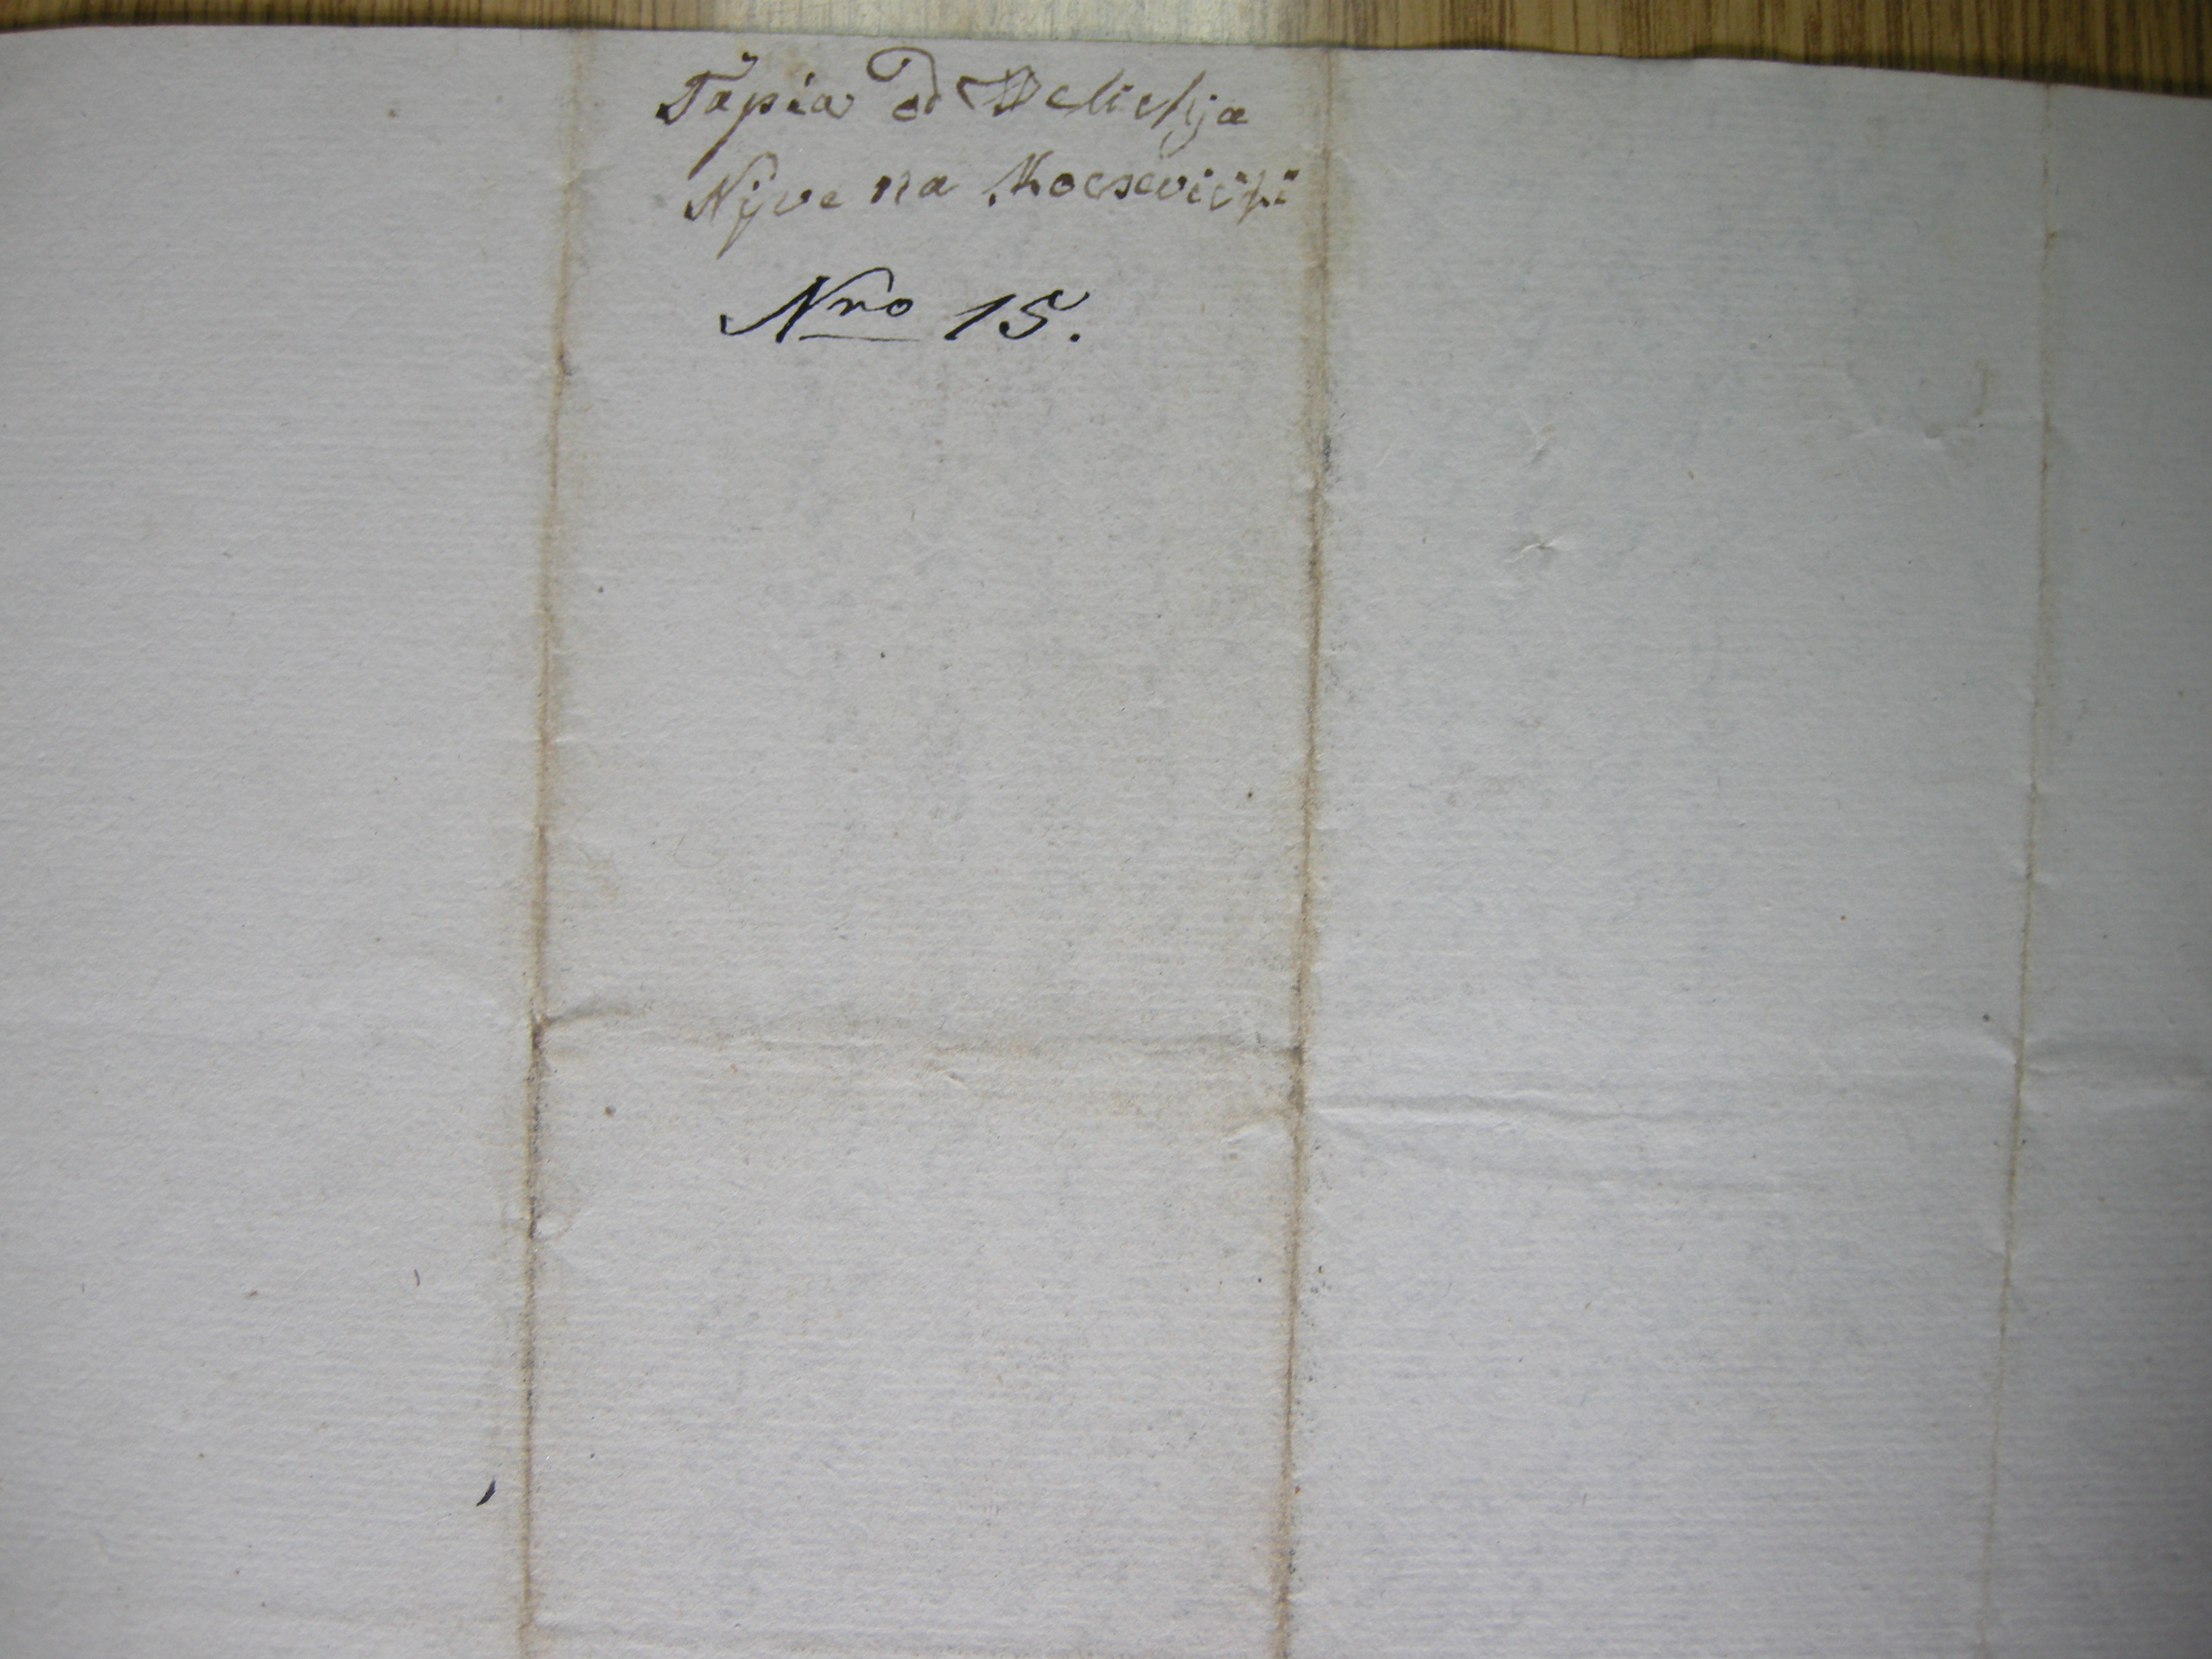 Tapia od Delichja
Nyve na Mocsevichi
Nro 15.